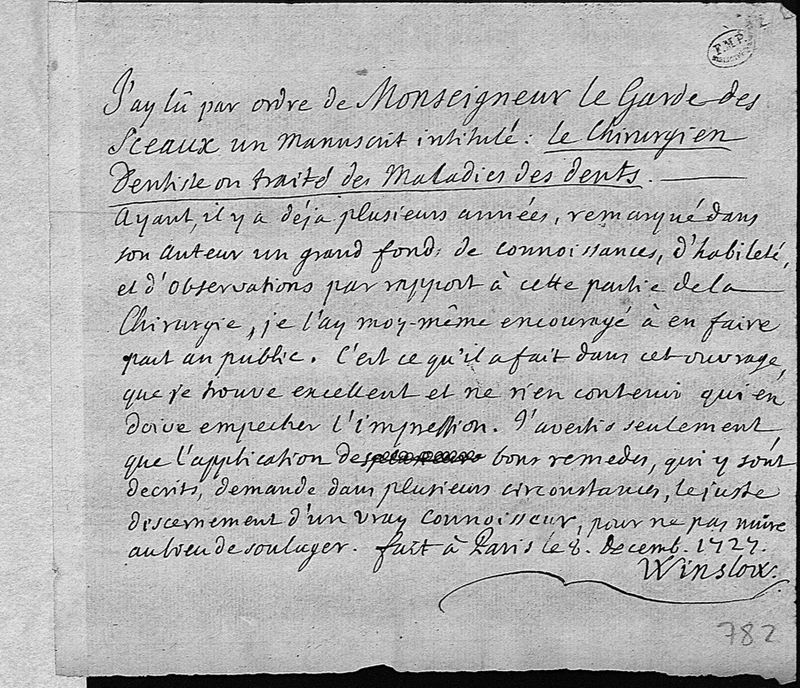 F.M.P.
J'ay lû par ordre de Monseigneur le Garde des
Sceaux un manuscrit intitulé: le Chirurgien
Dentiste ou traité des Maladies des dents.
Ayant, il y a déja plusieurs années, remarqué dans
son auteur un grand fond de connoissances, d'habileté,
et d'observations par rapport à cette partie de la
Chirurgie, je l'ay moy-même encouragé à en faire
part au public. C'est ce qu'il a fait dans cet ouvrage,
que je trouve excellent et ne rien contenir qui en
doive empecher l'impression. J'avertis seulement
que l'application de bons remedes, qui y sont
decrits, demande dans plusieurs circonstances, le juste
discernement d'un vray connoisseur, pour ne pas nuire
au lieu de soulager. fait à Paris le 8. Decemb. 1727.
Winslow.
782